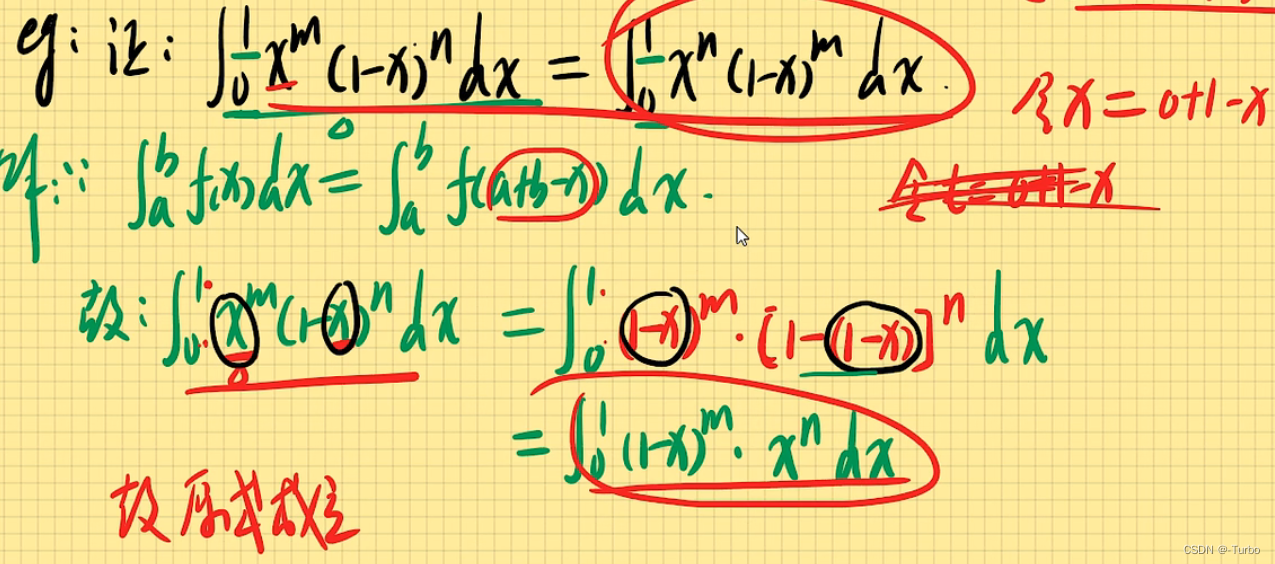 eg: 证: ∫₀¹ xᵐ (1-x)ⁿ dx = ∫₀¹ xⁿ (1-x)ᵐ dx.
令x = 0+1-x
∵ ∫ₐᵇ f(x)dx = ∫ₐᵇ f(a+b-x) dx.
令t=0+1-x
故: ∫₀¹ xᵐ(1-x)ⁿ dx = ∫₀¹ (1-x)ᵐ·[1-(1-x)]ⁿ dx
= ∫₀¹ (1-x)ᵐ· xⁿ dx
故原式成立
CSDN @-Turbo